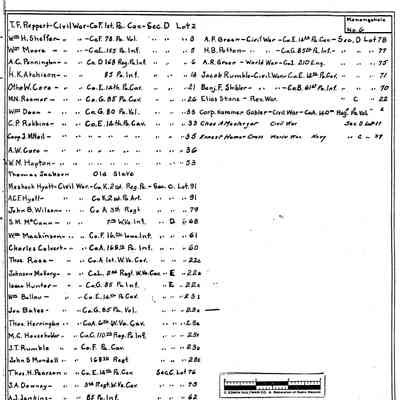 T.F. Reppert - Civil War - Co.F. 1st. Pa. Cav - Sec. D Lot 2
Wm H. Sheffer - " " - Co.F. 78. Pa. Vol. " " " 3
Wm Moore - " " - Co.L. 155 Pa. Inf. " " " 5
A.C. Pennington - " " - Co. D 168 Reg. Pa. Inf " " " 6
H.K. Atchison - " " 85 Pa. Inf. " " - 14
Otho W. Core - " " - Co.E. 14th Pa. Cav. " " - 21
M.N. Reamer - " " Co. G. 85 Pa. Cav " " - 26
Wm Dean - " " Co. G. 80 Pa. Vol. " " - 35
C.P. Robbins - " " Co.E. 16th Pa. Cav. " " - 33
A.W. Core - " " " " " - 36
W.M. Hopton - " " " " " - 53
Thomas Jackson Old Slave
Meshack Hyatt - Civil War - Co.K. 2nd. Reg. Pa. - Sec. D. Lot 91
A.C.F. Hyatt - " " Co.K. 2nd Pa. Art. " " - 91
John B. Wilson - " " Co A. 3th Regt " " - 79
S.M. McCann - " " 7th W.Va. Inf. " D " - 68
Wm Mankinson - " " Co.F. 16th Iowa Inf. " " - 61
Charles Calvert - " " Co A. 168th Pa. Inf. " " - 60
Thos Rose - " " Co.A 1st. W.Va. Cav. " " - 22c
Johnson McGary - " " Co.L. 2nd Regt. W.Va. Cav - E " - 22a
Isaac Hunter - " " Co.G. 85 Pa Inf. - E " - 22a
Wm Ballou - " " Co.E. 14th Pa Cav " " - 231
Joe Bates - " " Co.G. 85 Pa. Vol. " " - 23a
Thos. Herrington - " " Co A 6th W.Va. Cav. " " - 23a
M.C. Householder - " " Co. C. 110th Reg. Pa. Inf " " - 23a
J.T. Rumble " " Co. F. Pa. Cav " " - 23a
John S Mundell " " 168th Regt " " - 28c
Thos. H. Pearson " " Co.E. 14th Pa Cav Sec C. Lot 76
J.A. Downey - " " 3rd Regt. W.Va. Cav. " " - 73
A.J. Jenkins - " " 85 Pa. Inf. " " - 62
No. 6
A.F. Green - Civil War - Co.E. 14th Pa. Cav - Sec. D Lot 78
H.B. Patton - " " - Co.G. 85th Pa. Inf - " " 77
A.R. Green - World War - Co.L. 210 Eng. " " 75
Jacob Rumble - Civil War - Co.E. 14th Pa. Cav. " " 71
Benj. F. Shibler - " " - Co.B. 61st Pa. Inf. " " - 70
Elias Stone - Rev. War. " C " 22
Corp. Hammer Gabler - Civil War - Co.A. 140th Reg. Pa. Vol "
Civil War Sec D Lot 11
World War Navy " C - 39